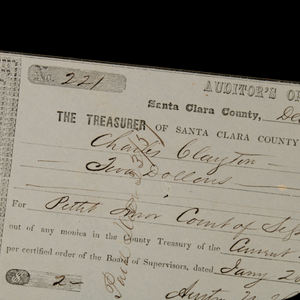 No. 221
AUDITOR'S OF
Santa Clara County, De
THE TREASURER OF SANTA CLARA COUNTY
Charles Clayton
Two Dollars
For Petit Juror Court of Sess
out of any monies in the County Treasury of the Current
per certified order of the Board of Supervisors, dated Jany 2
2-
Paid